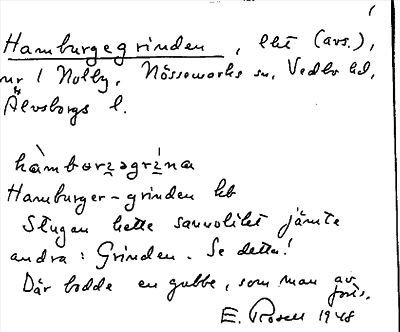 Hamburgegrinden, lht (avs.),
nr 1 Nolby, Nössemarks sn, Vedbo hd,
Älvsborgs l.
hàmborʐəgrína
Hamburger-grinden hb
Stugan hette sannolikt jämte
andra: Grinden. Se detta!
Där bodde en gubbe, som man av
E. Rosell 1948